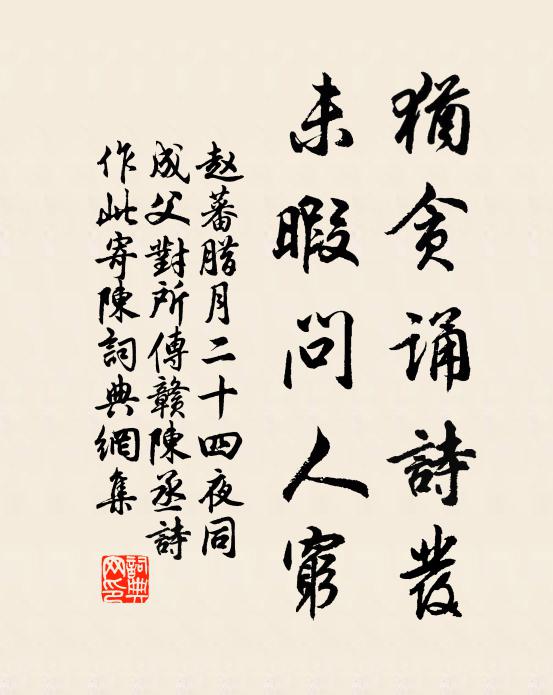 猶貪誦詩發
未暇問人窮
赵蕃腊月二十四夜同
成父對所傳贛陳丞詩
作此寄陳詞典網集
詞典
网印